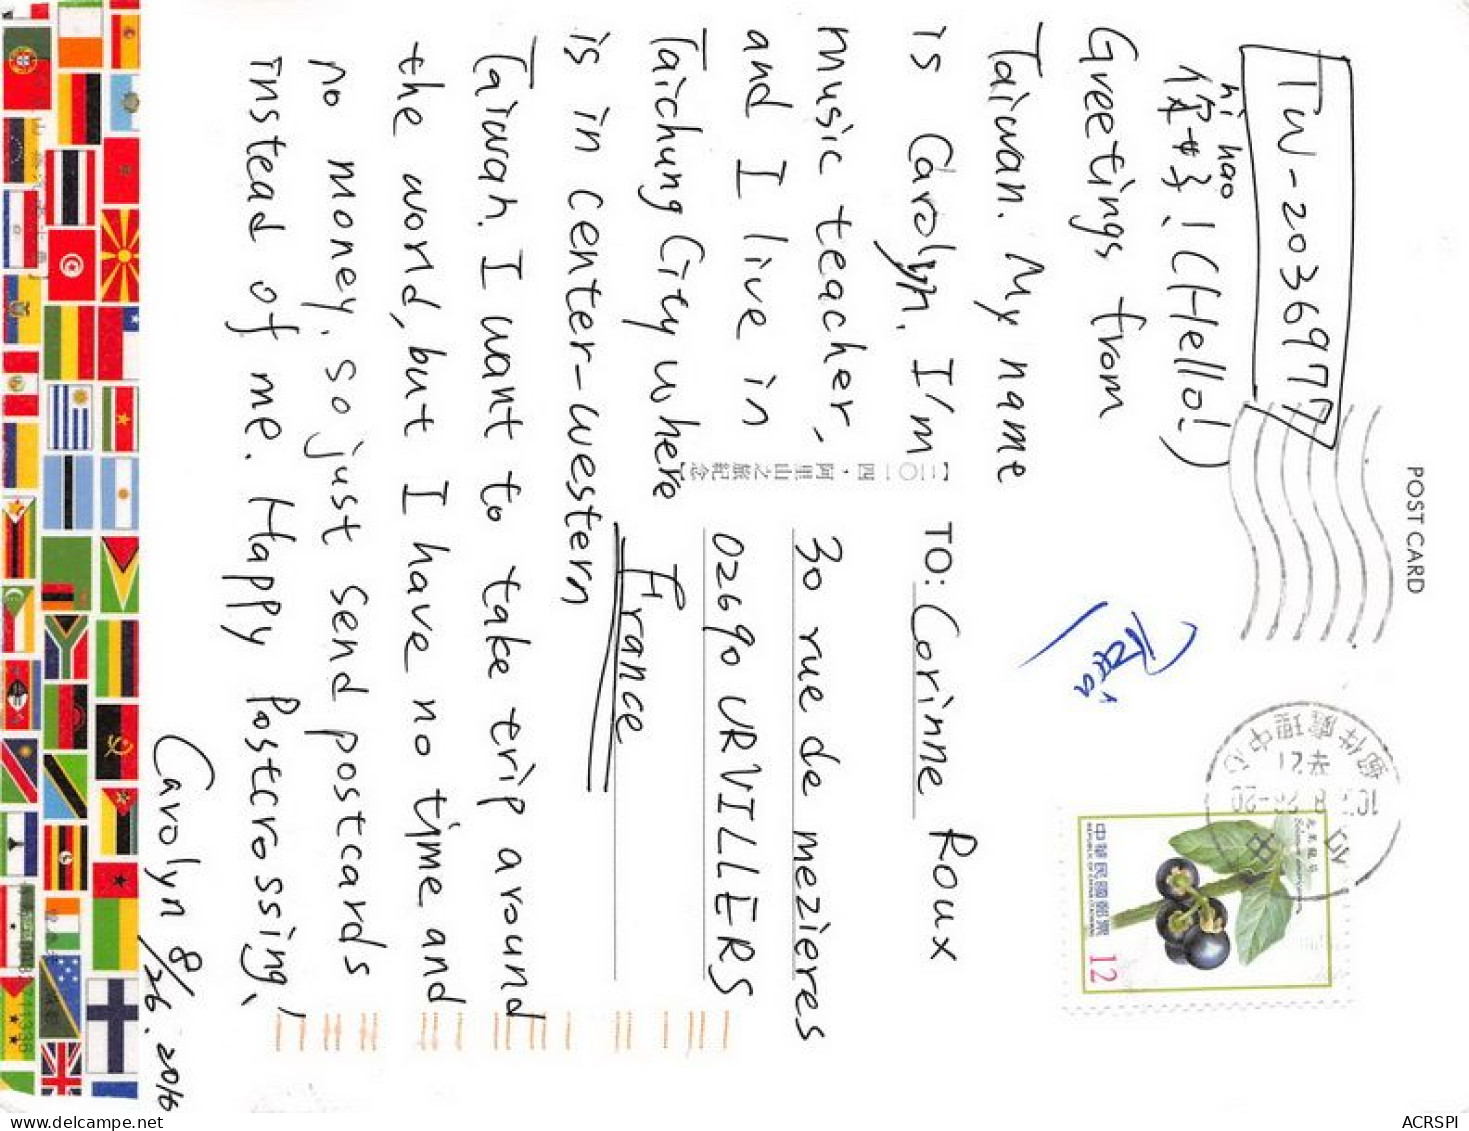 POST CARD
TW-2036977
hǐ hǎo
您好! (Hello!)
Greetings from
Taiwan. My name
is Carolyn. I'm
music teacher,
and I live in
Taichung City where
is in center-western
Taiwan. I want to take trip around
the world, but I have no time and
no money. so just send postcards
instead of me. Happy Postcrossing!
Carolyn 8/26. 2016
【二〇一四·阿里山之旅紀念】
TO: Corinne Roux
30 rue de mezières
02690 URVILLERS
France
郵件處理中心
中華民國郵票
REPUBLIC OF CHINA (TAIWAN)
12
ACRSPI